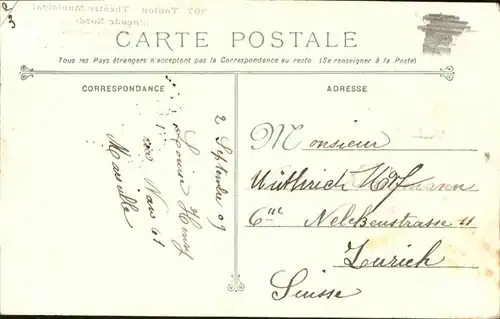 302
107 Toulon - Théâtre Municipal
Façade Nord
CARTE POSTALE
Tous les Pays étrangers n'acceptent pas la Correspondance au recto (Se renseigner à la Poste)
CORRESPONDANCE
2 Septembre 09
Louise Henry
rue 61
Marseille
ADRESSE
Monsieur
Wüthrich Hoffmann
Nelckenstrasse 11
Zurich
Suisse